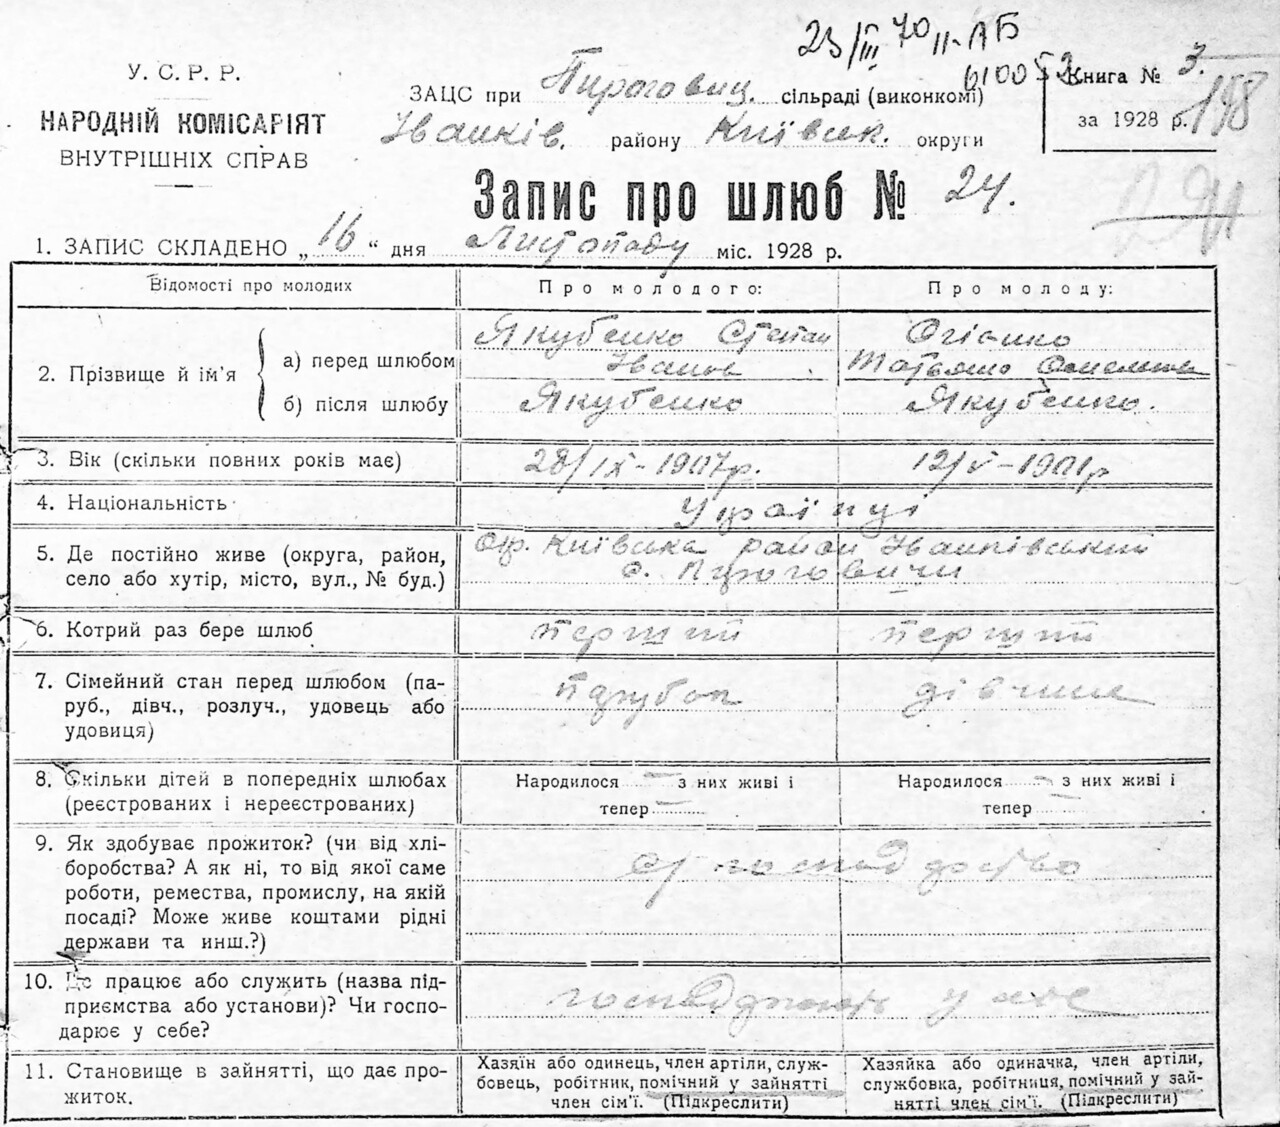 23/III 70 II-АБ
У. С. Р. Р.
НАРОДНІЙ КОМІСАРІЯТ
ВНУТРІШНІХ СПРАВ
ЗАЦС при Пироговиц. сільраді (виконкомі)
Іванків. району Київськ. округи
Книга № 3.
за 1928 р.
198
Запис про шлюб № 24.
1. ЗАПИС СКЛАДЕНО „ 16 “ дня Листопаду міс. 1928 р.
Відомості про молодих
Про молодого:
Про молоду:
2. Прізвище й ім'я
а) перед шлюбом
Якубенко Степан
Іванов
Огієнко
б) після шлюбу
Якубенко
Якубенко.
3. Вік (скільки повних років має)
28/IX-1907р.
12/V-1901р
4. Національність
Українці
5. Де постійно живе (округа, район,
село або хутір, місто, вул., № буд.)
Окр. Київська район Іванківський
с. Пироговичи
6. Котрий раз бере шлюб
перший
перший
7. Сімейний стан перед шлюбом (па-
руб., дівч., розлуч., удовець або
удовиця)
парубок
дівчина
8. Скільки дітей в попередніх шлюбах
(реєстрованих і нереєстрованих)
Народилося — з них живі і
тепер —
Народилося — з них живі і
тепер —
9. Як здобуває прожиток? (чи від хлі-
боробства? А як ні, то від якої саме
роботи, ремества, промислу, на якій
посаді? Може живе коштами рідні
держави та инш.?)
с/господарство
10. Де працює або служить (назва під-
приємства або установи)? Чи госпо-
дарює у себе?
у
11. Становище в зайнятті, що дає про-
житок.
Хазяїн або одинець, член артіли, служ-
бовець, робітник, помічний у зайнятті
член сім'ї. (Підкреслити)
Хазяйка або одиначка, член артіли,
службовка, робітниця, помічний у зай-
нятті член сім'ї. (Підкреслити)